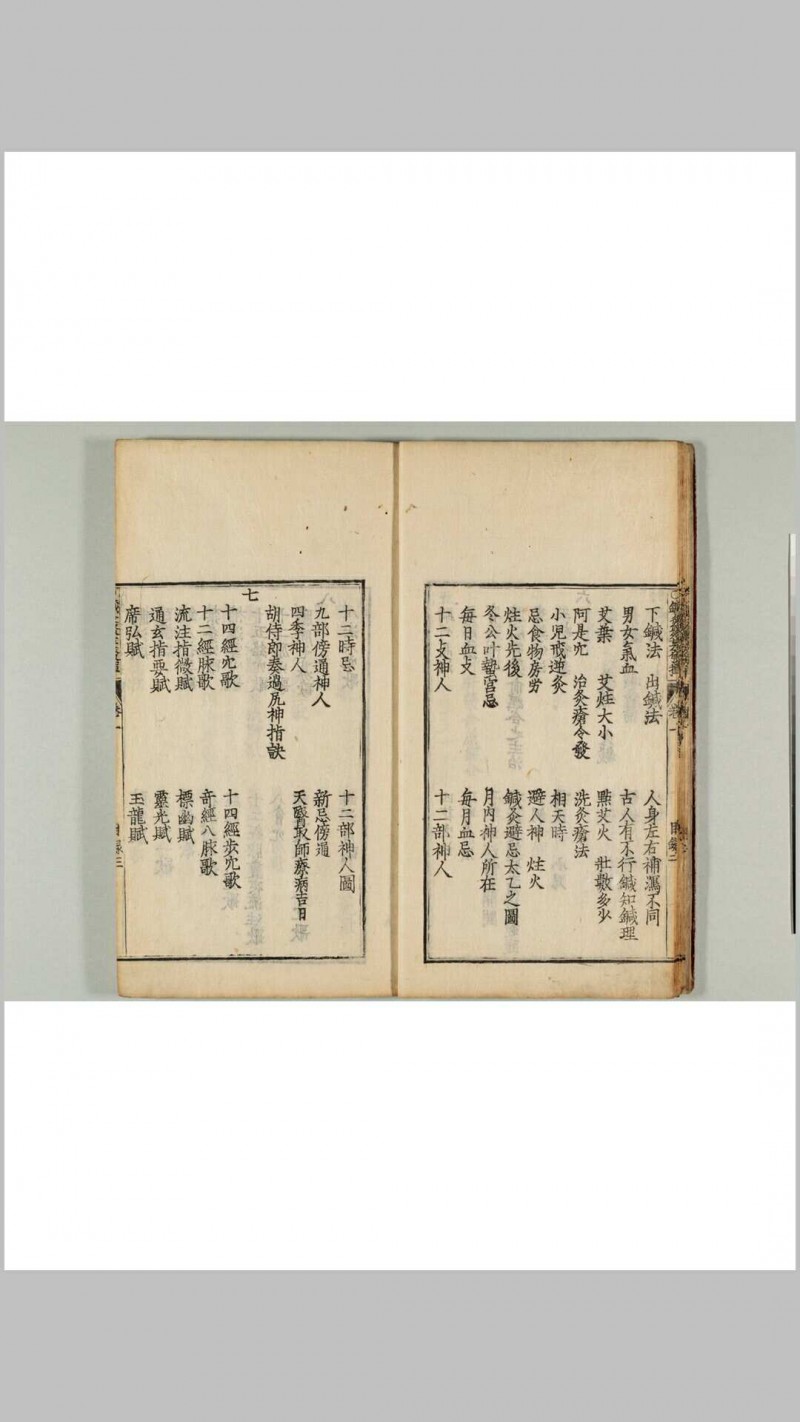 下鍼法 出鍼法 人身左右補瀉不同
男女氣血 古人有不行鍼知鍼理
艾葉 艾炷大小 點艾火 壯數多少
阿是穴 治灸瘡令發 洗灸瘡法
小児戒逆灸 相天時
忌食物房労 避人神 炷火
炷火先後 鍼灸避忌太乙之圖
冬公叶蟄宮忌 月內神人所在
每日血支 每月血忌
十二支神人 十二部神人
十二時忌 十二部神人圖
九部傍通神人 新忌傍通
四季神人 天醫取師療病吉日
胡侍郎奏過尻神指訣
七
十四經穴歌 十四經步穴歌
十二經脉歌 奇經八脉歌
流注指微賦 標幽賦
通玄指要賦 靈光賦
席弘賦 玉龍賦
卷一 目錄三